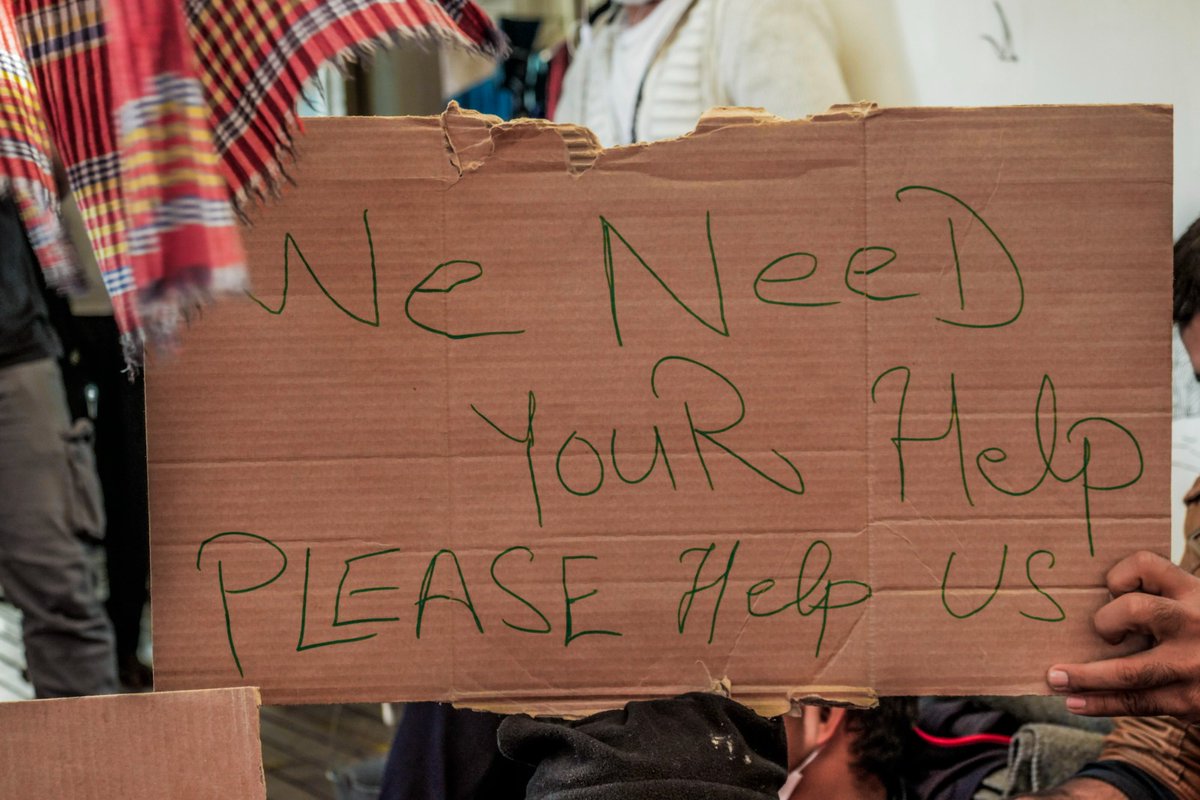 We Need
YouR Help
PLEASE Help US